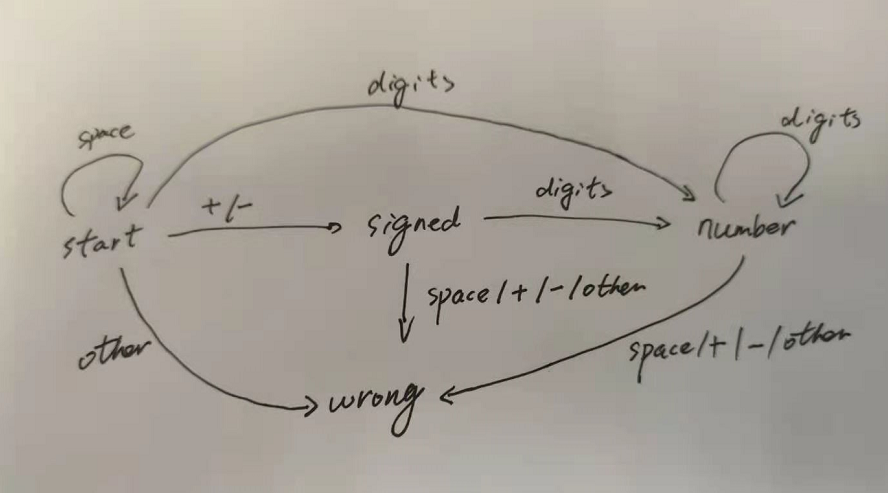 digits
space
digits
+/-
digits
start
signed
number
space/+/-/other
other
space/+/-/other
wrong